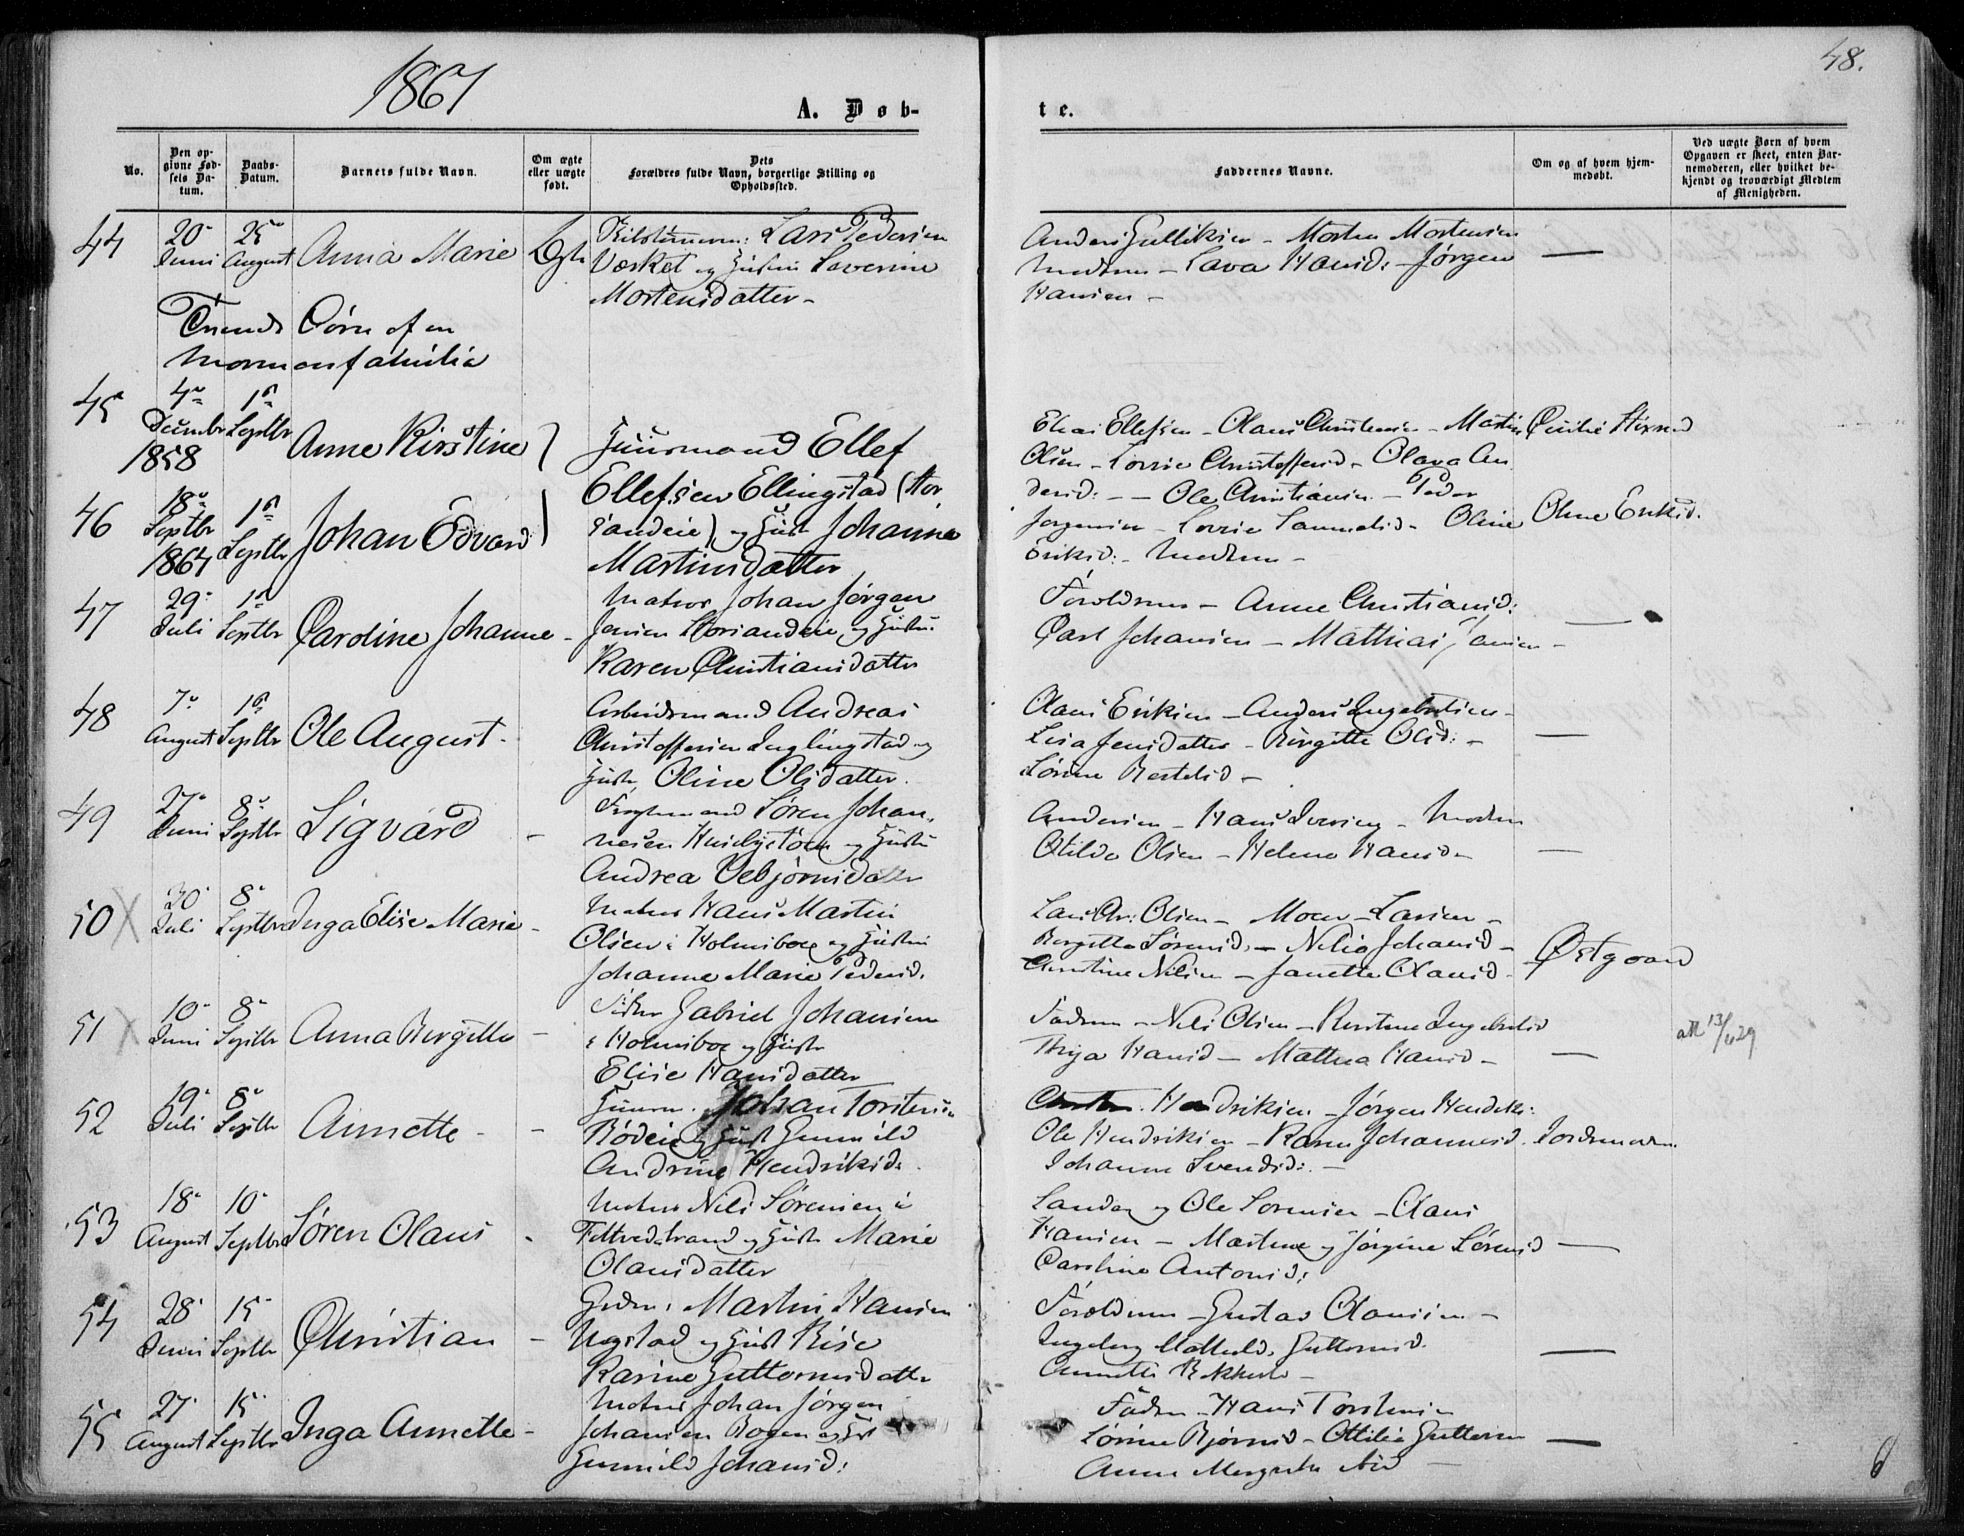 1867
48.
A. Døb-
te.
No.
Den op-
givne Fød-
sels Da-
tum.
Daabs-
Datum.
Barnets fulde Navn.
Om ægte
eller uægte
født.
Dets
Forældres fulde Navn, borgerlige Stilling og
Opholdssted.
Faddernes Navne.
Om og af hvem hjem-
medøbt.
Ved uægte Børn af hvem
Opgaven er skeet, enten Bar-
nemoderen, eller hvilket be-
kjendt og troværdigt Medlem
af Menigheden.
44
20
Juni
25
August
Anna Marie
Ægte
Lars Pedersen
Værket og Hustru Saverine
Mortensdatter -
Anders Gulliksen - Morten Mortensen
Modren - Lava Hansd: - Jørgen
Hansen -
Tvende Børn af en
Mormonfamilie
45
4
Decembr
1858
1
Septbr
Anne Kirstine
Huusmand Ellef
Ellefsen Ellingstad (Stor
sandeie) og Hust Johanne
Martinsdatter
Elias Ellefsen - Olaus Christensen - Martin
Olsen - Lovise Christoffersd - Olava An
dersd: - - Ole Christiansen - Peder
46
18
Septbr
1864
1
Septbr
Johan Edvard
Jørgensen - Lovise Samuelsd - Oline
Eriksd: - Modren -
Oline Eriksd.
47
29
Juli
1
Septbr
Caroline Johanne -
Matros Johan Jørgen
Jensen Storsandeie og Hustru
Karen Christiansdatter
Forældrene - Anne Christiansd:
Carl Johansen - Mathias Jansen -
48
7
August
1
Septbr
Ole August -
Arbeidsmand Andreas
Christoffersen Inglingstad og
Hustr Oline Olsdatter.
Olaus Eriksen - Anders Ingebretsen -
Lisa Jensdatter - Birgitte Olsd: -
Sørine Bertelsd -
49
27
Juni
8
Septbr
Sigvard -
Søren Johan-
nesen Husebystøen og Hustru
Andrea Vebjørnsdatter
Andersen - Hans Iversen - Modren
Otilde Olsen - Helene Hansd -
50
30
Juli
8
Septbr
Inga Elise Marie -
Matros Hans Martin
Olsen i Holmsboe og Hustru
Johanne Marie Pedersd.
Lars Chr: Olsen - Moen - Larsen -
Birgitte Sørensd. - Nilia Johansd -
Christine Nilsen - Janette Olausd -
Østgaard
51
10
Juni
8
Septbr
Anna Birgitte -
Fisker Gabriel Johansen
i Holmsboe og Hustr
Elise Hansdatter
Fadren - Nils Olsen - Kirstine Ingebretsd
Thrya Hansd - Mathea Hansd -
att 13/6 29
52
19
Juli
8
Septbr
Annette - -
Huusm. Johan Torstensen
Rødeie og Hust Gunnild
Andrine Hendriksd:
Hendriksen - Jørgen Hendriks:
Ole Hendriksen - Karen Johannesd.
Johanne Svendsd: -
Jordmodren
53
18
August
10
Septbr
Søren Olaus -
Matros Nils Sørensen i
Filtvedstrand og Hustr Marie
Olausdatter
og Ole Sørensen - Olaus
Hansen - Martine og Jørgine Sørensd
Caroline Antonsd:
54
28
Juni
15
Septbr
Christian -
Martin Hansen
og Hust
Karine Guttormsdatter
Forældrene - Gustav Olausen -
Ingeborg Mathild. Guttormsd.
55
27
August
15
Septbr
Inga Annette -
Matros Johan Jørgen
Johansen Bogen og Hust
Gunnild Johansd:
Fadren - Hans Torstensen
Sørine Bjørnsd - Ottilie Guttorm
Anne Margrethe
6